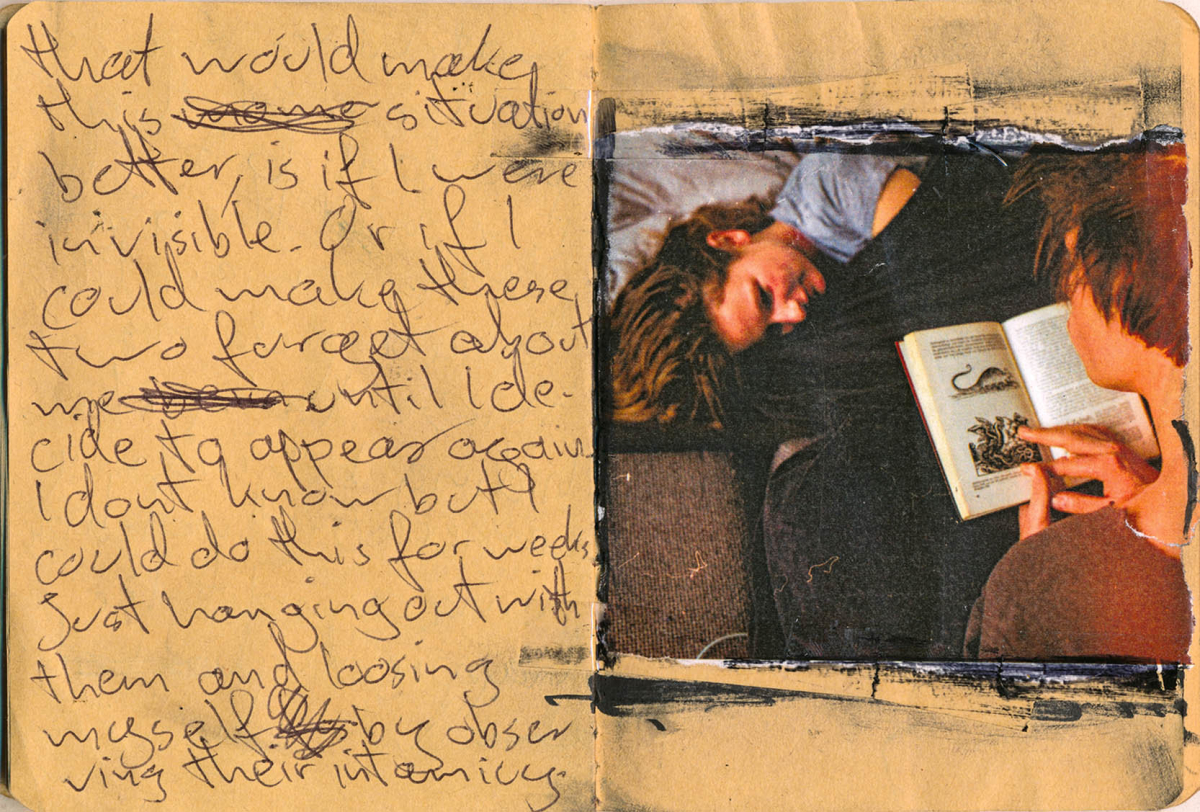 that would make
this situation
better, is if I were
invisible. Or if I
could make these
two forget about
me until I de-
cide to appear again
I dont know but I
could do this for weeks
Just hanging out with
them and loosing
myself by obser
ving their intamicy.